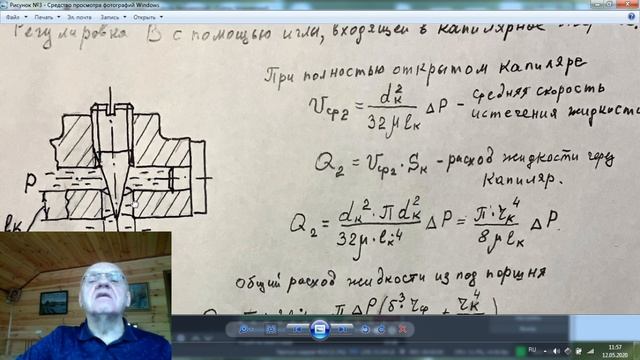 Рисунок №3 - Средство просмотра фотографий Windows
Файл Печать Эл. почта Запись Открыть
Регулировка B с помощью иглы, входящей в капилярное
При полностью открытом капиляре
Vср2 = dк² / 32μlк ΔP - средняя скорость
истечения жидкости
Q2 = Vср2 · Sк - расход жидкости через
капиляр.
Q2 = dк² · πdк² / 32μ·lк·4 ΔP = π·rк⁴ / 8μlк ΔP.
P
lк
Общий расход жидкости из под поршня
π ΔP (δ³·rср + rк⁴)
RU
11:57
12.05.2020